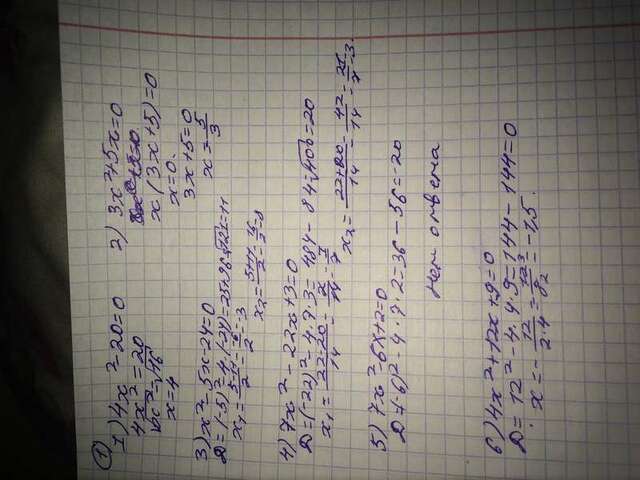 ①
1) 4x² - 20 = 0
4x² = 20
x² = √16
x = 4
2) 3x² + 5x = 0
x (3x + 5) = 0
x = 0.
3x + 5 = 0
x = - 5/3
3) x² - 5x - 24 = 0
D = (-5)² - 4 · (-24) = 25 + 96 = √121 = 11
x₁ = (5-11)/2 = -6/2 = -3
x₂ = (5+11)/2 = 16/2 = 8
4) 7x² - 22x + 3 = 0
D = (-22)² - 4 · 7 · 3 = 484 - 84 = √400 = 20
x₁ = (22-20)/14 = 2/14 = 1/7
x₂ = (22+20)/14 = 42/14 = 21/7 = 3.
5) 7x² - 6x + 2 = 0
D = (-6)² - 4 · 7 · 2 = 36 - 56 = -20
Нет ответа
6) 4x² + 12x + 9 = 0
D = 12² - 4 · 4 · 9 = 144 - 144 = 0
x = - 12/(2·4) = 12³/8₂ = -1,5.